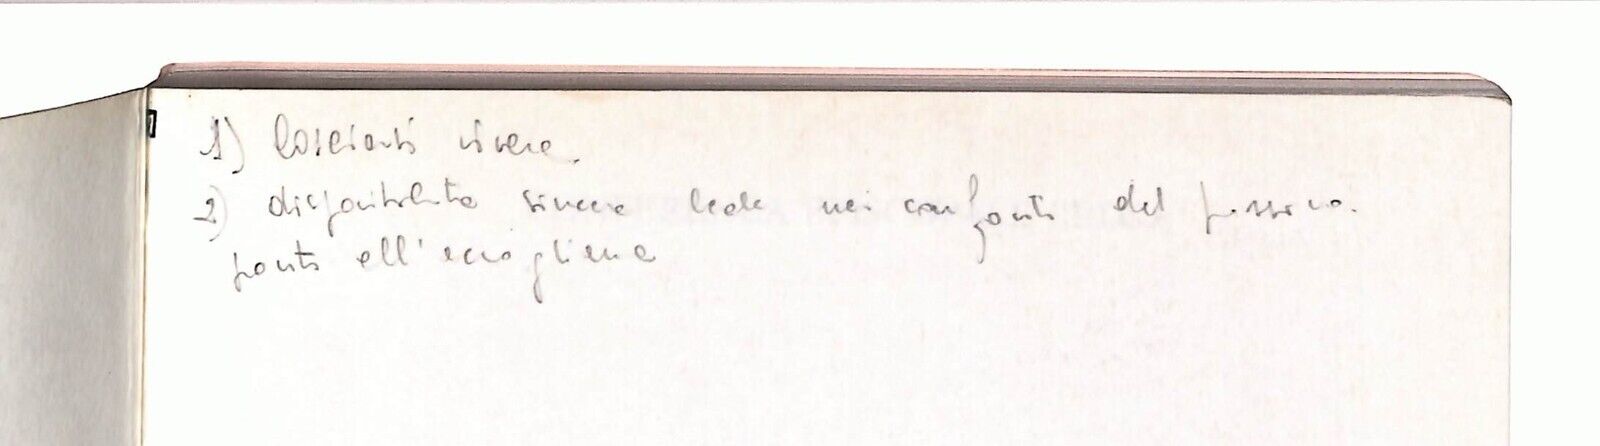 1) lasciarsi vivere.
2) disponibilità sincera leale nei confronti del prossimo.
pronti all'accoglienza